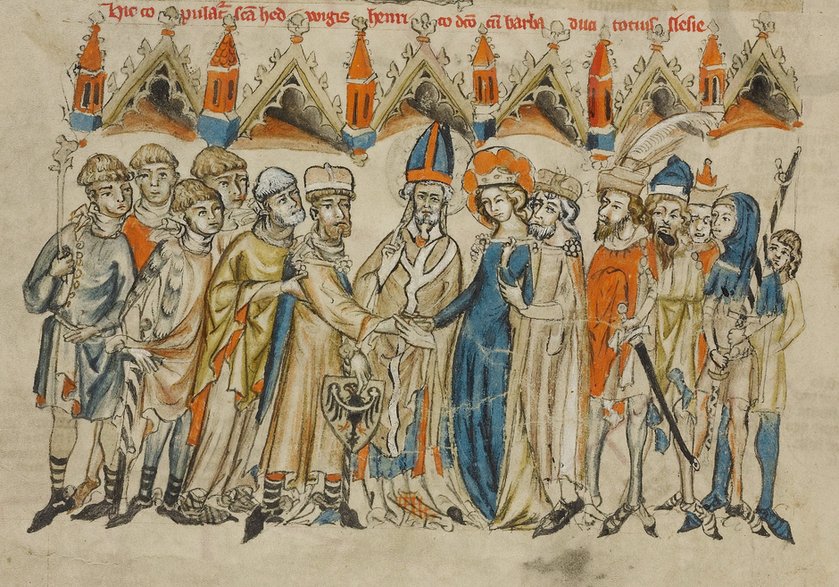 Hic copulat̄ sc̄a hedwigis henrico dc̄o cū barba duci totius slesie